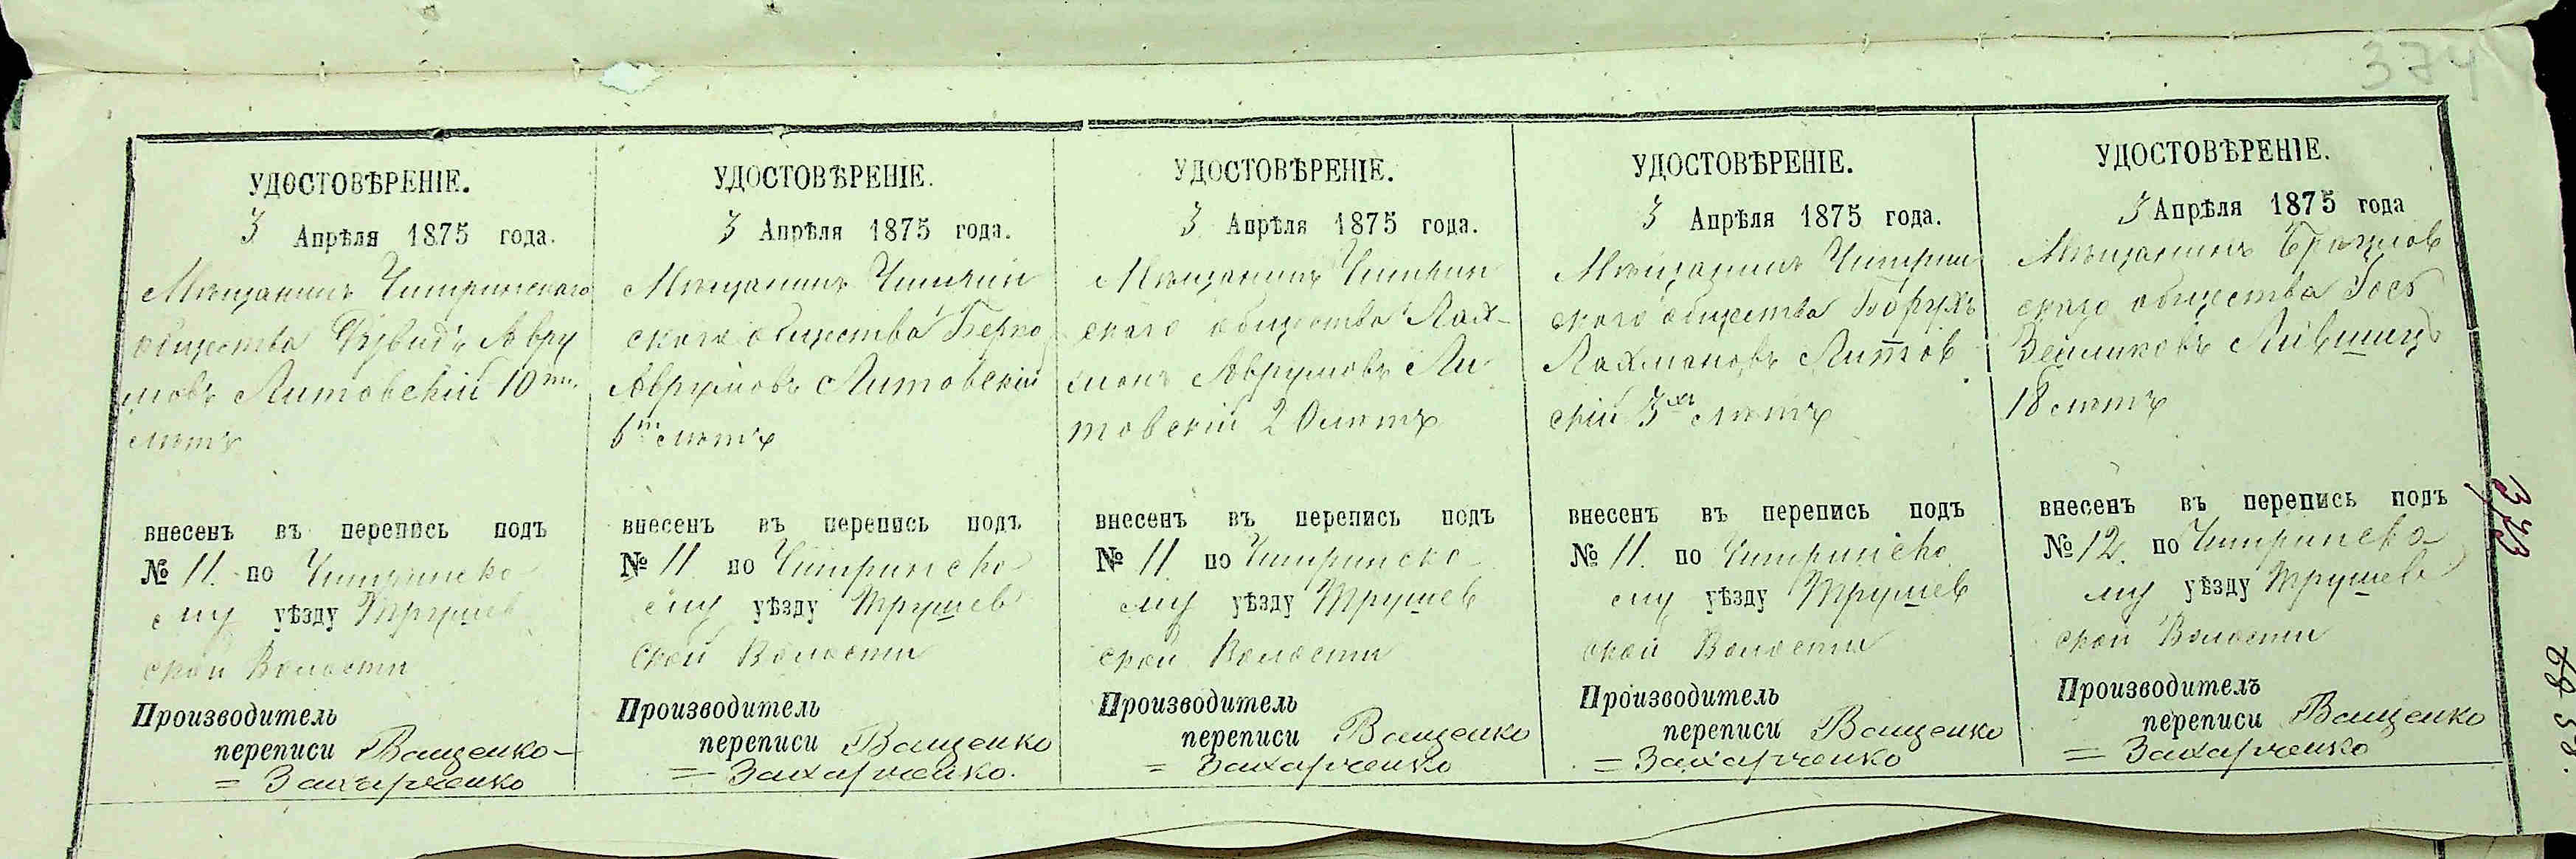 374
УДОСТОВѢРЕНІЕ.
3 Апрѣля 1875 года.
Мѣщанинъ Чигринскаго
общества Дувидъ Авру
мовъ Литовскій 10ти.
лѣтъ
внесенъ въ перепись подъ
№ 11. по Чигринско
му уѣзду Трушев
ской Волости
Производитель
переписи Ващенко-
= Захарченко
УДОСТОВѢРЕНІЕ.
3 Апрѣля 1875 года.
Мѣщанинъ Чигрин
скаго общества Берко
Аврумовъ Литовскій
6ти лѣтъ
внесенъ въ перепись подъ
№ 11 по Чигринско
му уѣзду Трушев
ской Волости
Производитель
переписи Ващенко
= Захарченко.
УДОСТОВѢРЕНІЕ.
3 Апрѣля 1875 года.
Мѣщанинъ Чигрин
скаго общества Лах-
манъ Аврумовъ Ли
товскій 20 лѣтъ
внесенъ въ перепись подъ
№ 11 по Чигринско
му уѣзду Трушев
ской Волости
Производитель
переписи Ващенко
= Захарченко
УДОСТОВѢРЕНІЕ.
3 Апрѣля 1875 года.
Мѣщанинъ Чигрин
скаго общества Борухъ
Лахмановъ Литов
скій 3хъ лѣтъ
внесенъ въ перепись подъ
№ 11. по Чигринско
му уѣзду Трушев
ской Волости
Производитель
переписи Ващенко
= Захарченко
УДОСТОВѢРЕНІЕ.
3 Апрѣля 1875 года
Мѣщанинъ Брацлов
скаго общества Іось
Зейликовъ Лившицъ
18 лѣтъ
внесенъ въ перепись подъ
№ 12. по Чигринско
му уѣзду Трушев
ской Волости
Производитель
переписи Ващенко
= Захарченко
373